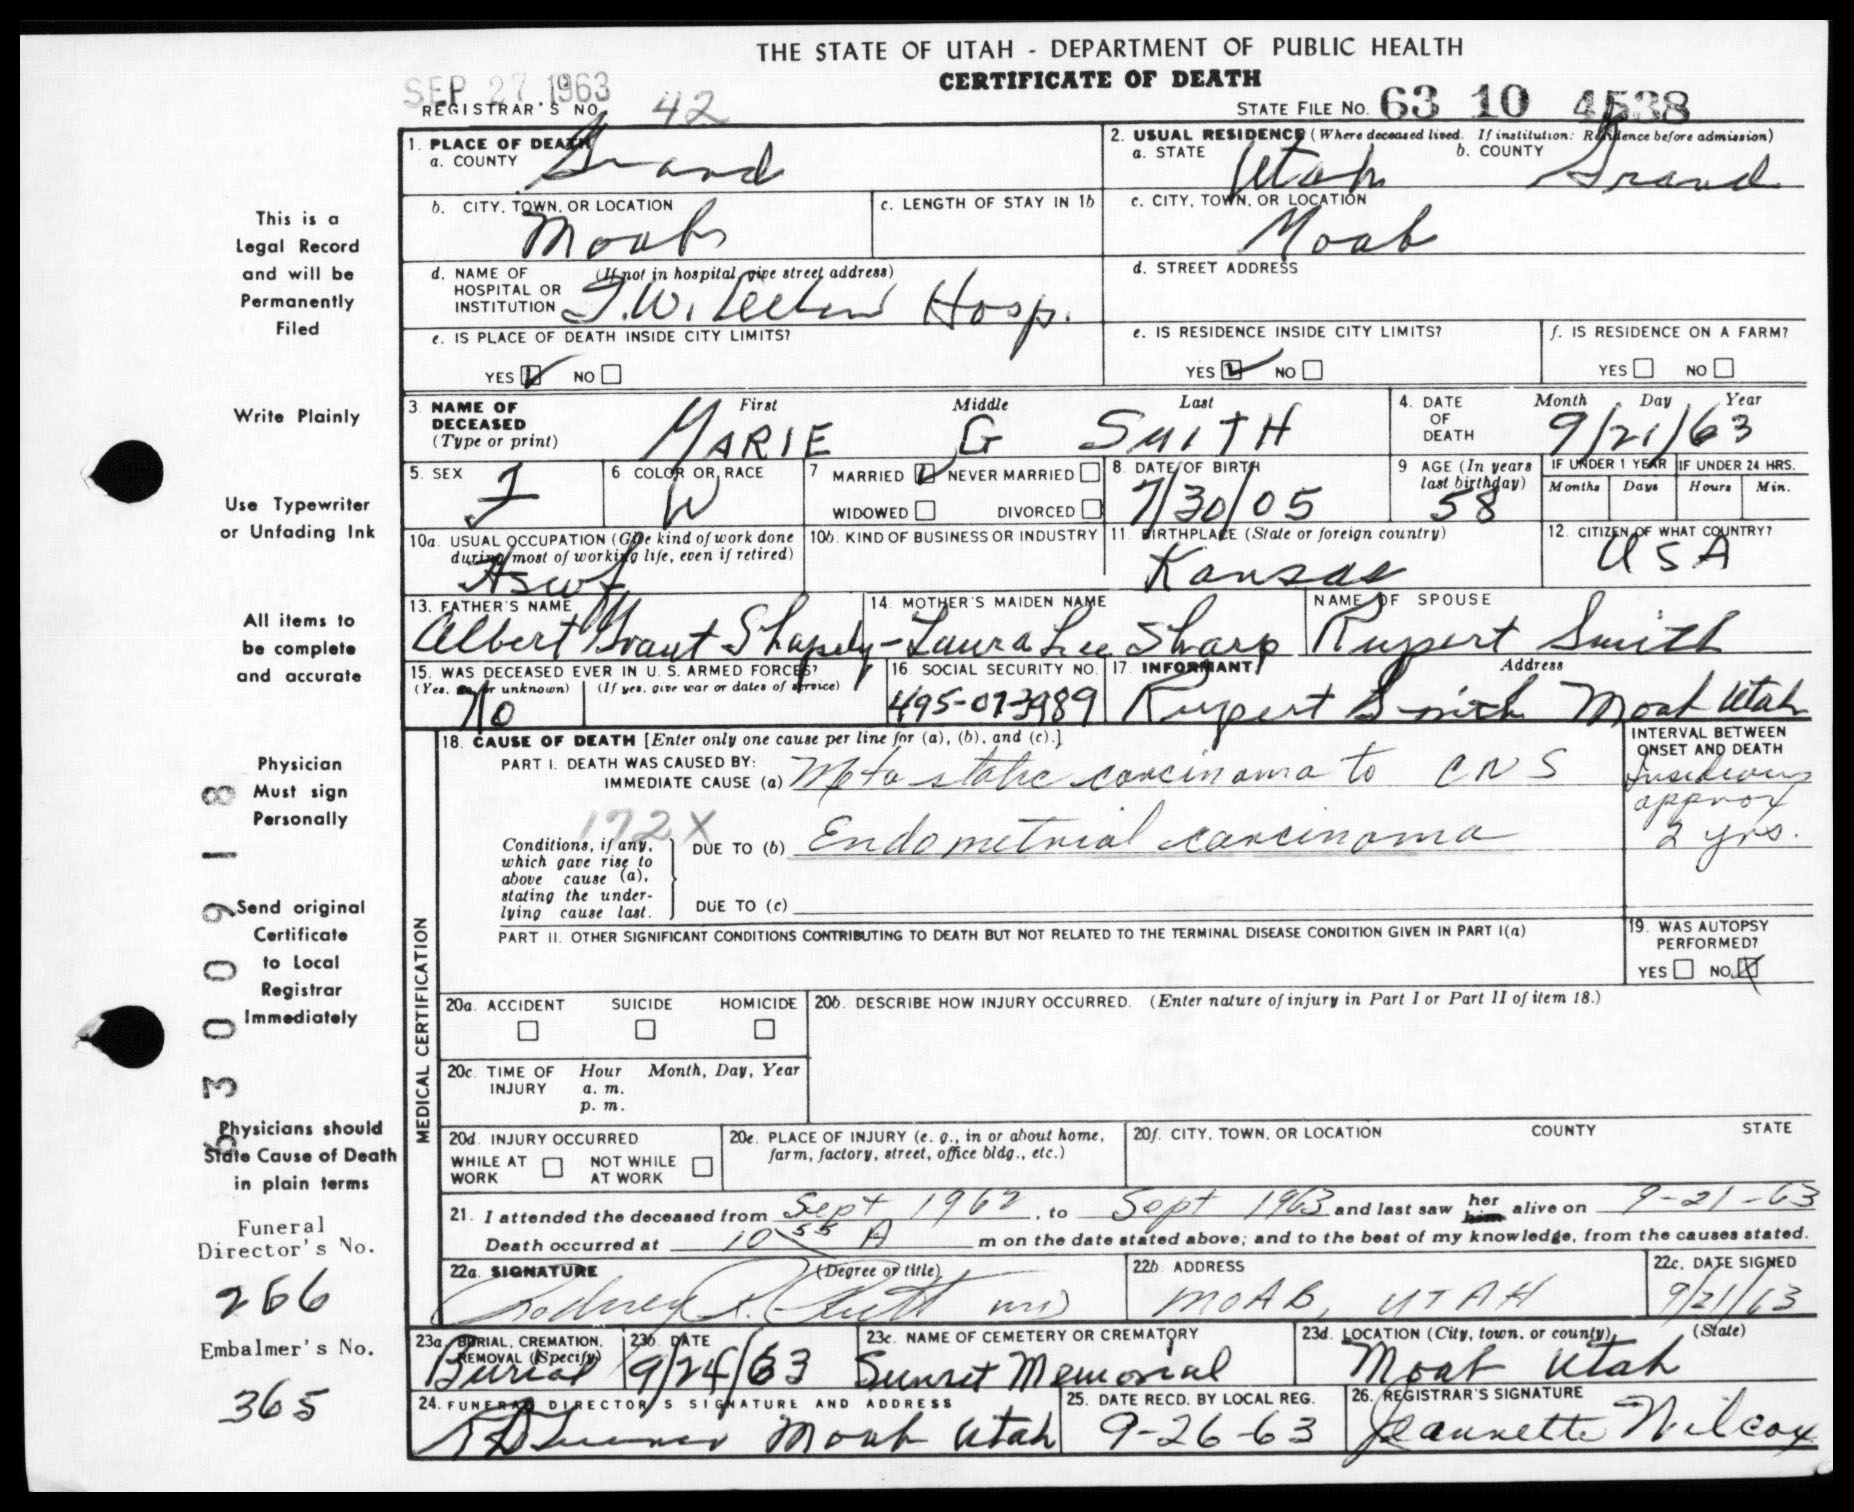 THE STATE OF UTAH - DEPARTMENT OF PUBLIC HEALTH
CERTIFICATE OF DEATH
SEP 27 1963
REGISTRAR'S NO. 42
STATE FILE NO. 63 10 4538
1. PLACE OF DEATH
a. COUNTY Grand
2. USUAL RESIDENCE (Where deceased lived. If institution: Residence before admission)
a. STATE Utah b. COUNTY Grand
b. CITY, TOWN, OR LOCATION Moab
c. LENGTH OF STAY IN 1b
c. CITY, TOWN, OR LOCATION Moab
d. NAME OF HOSPITAL OR INSTITUTION (If not in hospital, give street address) Hosp.
d. STREET ADDRESS
e. IS PLACE OF DEATH INSIDE CITY LIMITS?
YES NO
e. IS RESIDENCE INSIDE CITY LIMITS?
YES NO
f. IS RESIDENCE ON A FARM?
YES NO
3. NAME OF DECEASED (Type or print)
First Middle Last
MARIE G SMITH
4. DATE OF DEATH
Month Day Year
9/21/63
5. SEX F
6 COLOR OR RACE W
7 MARRIED NEVER MARRIED
WIDOWED DIVORCED
8. DATE OF BIRTH 7/30/05
9 AGE (In years last birthday) 58
IF UNDER 1 YEAR
Months Days
IF UNDER 24 HRS.
Hours Min.
10a. USUAL OCCUPATION (Give kind of work done during most of working life, even if retired)
Hswf
10b. KIND OF BUSINESS OR INDUSTRY
11. BIRTHPLACE (State or foreign country) Kansas
12. CITIZEN OF WHAT COUNTRY? USA
13. FATHER'S NAME Albert Grant Shapely
14. MOTHER'S MAIDEN NAME Laura Lee Sharp
NAME OF SPOUSE Rupert Smith
15. WAS DECEASED EVER IN U. S. ARMED FORCES?
(Yes, no, or unknown) (If yes, give war or dates of service)
No
16. SOCIAL SECURITY NO. 495-07-3989
17. INFORMANT Address
Rupert Smith Moab Utah
MEDICAL CERTIFICATION
18. CAUSE OF DEATH [Enter only one cause per line for (a), (b), and (c).]
INTERVAL BETWEEN ONSET AND DEATH
PART I. DEATH WAS CAUSED BY:
IMMEDIATE CAUSE (a) Metastatic carcinoma to CNS
approx 2 yrs.
172X
Conditions, if any, which gave rise to above cause (a), stating the underlying cause last.
DUE TO (b) Endometrial carcinoma
DUE TO (c)
PART II. OTHER SIGNIFICANT CONDITIONS CONTRIBUTING TO DEATH BUT NOT RELATED TO THE TERMINAL DISEASE CONDITION GIVEN IN PART I(a)
19. WAS AUTOPSY PERFORMED?
YES NO X
20a. ACCIDENT SUICIDE HOMICIDE
20b. DESCRIBE HOW INJURY OCCURRED. (Enter nature of injury in Part I or Part II of item 18.)
20c. TIME OF INJURY Hour Month, Day, Year
a. m.
p. m.
20d. INJURY OCCURRED
WHILE AT WORK NOT WHILE AT WORK
20e. PLACE OF INJURY (e. g., in or about home, farm, factory, street, office bldg., etc.)
20f. CITY, TOWN, OR LOCATION COUNTY STATE
21. I attended the deceased from Sept 1962, to Sept 1963 and last saw her him alive on 9-21-63
Death occurred at 10 55 A m on the date stated above; and to the best of my knowledge, from the causes stated.
22a. SIGNATURE (Degree or title)
Rodney MD
22b. ADDRESS MOAB, UTAH
22c. DATE SIGNED 9/21/63
23a. BURIAL, CREMATION, REMOVAL (Specify) Burial
23b. DATE 9/24/63
23c. NAME OF CEMETERY OR CREMATORY Sunset Memorial
23d. LOCATION (City, town, or county) (State)
Moab Utah
24. FUNERAL DIRECTOR'S SIGNATURE AND ADDRESS
Moab Utah
25. DATE RECD. BY LOCAL REG. 9-26-63
26. REGISTRAR'S SIGNATURE Jeannette Wilcox
This is a
Legal Record
and will be
Permanently
Filed
Write Plainly
Use Typewriter
or Unfading Ink
All items to
be complete
and accurate
Physician
Must sign
Personally
Send original
Certificate
to Local
Registrar
Immediately
Physicians should
State Cause of Death
in plain terms
Funeral
Director's No.
266
Embalmer's No.
365